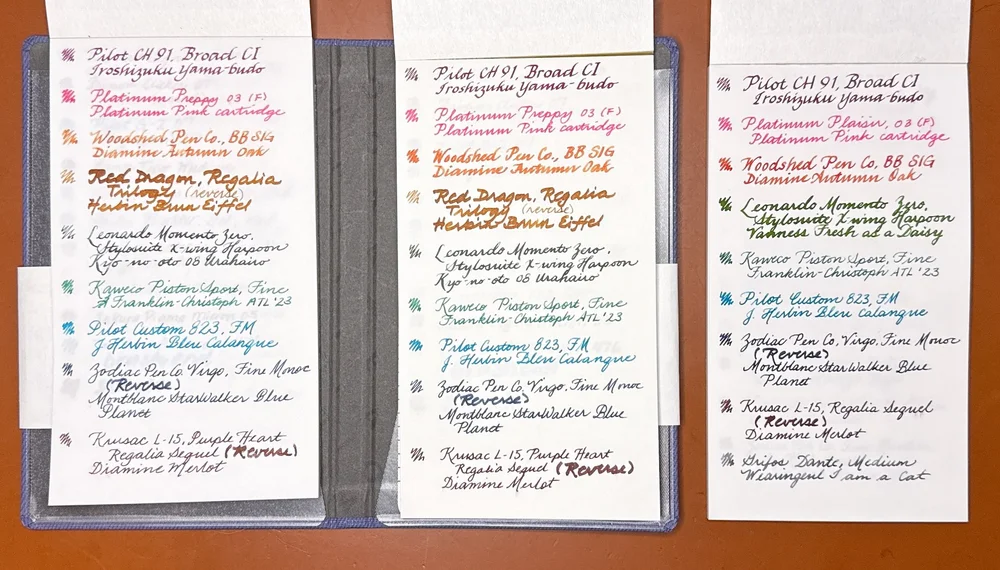 Pilot CH 91, Broad CI
Iroshizuku Yama-budo
Platinum Preppy 03 (F)
Platinum Pink cartridge
Woodshed Pen Co., BB SIG
Diamine Autumn Oak
Red Dragon, Regalia
Trilogy (reverse)
Herbin Brun Eiffel
Leonardo Momento Zero,
Stylosuite X-wing Harpoon
Kyo-no-oto 05 Urahairo
Kaweco Piston Sport, Fine
Franklin-Christoph ATL '23
Pilot Custom 823, FM
J. Herbin Bleu Calanque
Zodiac Pen Co. Virgo, Fine Monoc
(Reverse)
Montblanc StarWalker Blue
Planet
Krusac L-15, Purple Heart
Regalia Sequel (Reverse)
Diamine Merlot
Pilot CH 91, Broad CI
Iroshizuku Yama-budo
Platinum Preppy 03 (F)
Platinum Pink cartridge
Woodshed Pen Co., BB SIG
Diamine Autumn Oak
Red Dragon, Regalia
Trilogy (reverse)
Herbin Brun Eiffel
Leonardo Momento Zero,
Stylosuite X-wing Harpoon
Kyo-no-oto 05 Urahairo
Kaweco Piston Sport, Fine
Franklin-Christoph ATL '23
Pilot Custom 823, FM
J. Herbin Bleu Calanque
Zodiac Pen Co. Virgo, Fine Monoc
(Reverse)
Montblanc StarWalker Blue
Planet
Krusac L-15, Purple Heart
Regalia Sequel (Reverse)
Diamine Merlot
Pilot CH 91, Broad CI
Iroshizuku Yama-budo
Platinum Plaisir, 03 (F)
Platinum Pink cartridge
Woodshed Pen Co, BB SIG
Diamine Autumn Oak
Leonardo Momento Zero,
Stylosuite X-wing Harpoon
Vanness Fresh as a Daisy
Kaweco Piston Sport, Fine
Franklin-Christoph ATL '23
Pilot Custom 823, FM
J. Herbin Bleu Calanque
Zodiac Pen Co, Virgo, Fine Monoc
(Reverse)
Montblanc StarWalker Blue
Planet
Krusac L-15, Regalia Sequel
(Reverse)
Diamine Merlot
Grifos Dante, Medium
Wearingeul I am a Cat